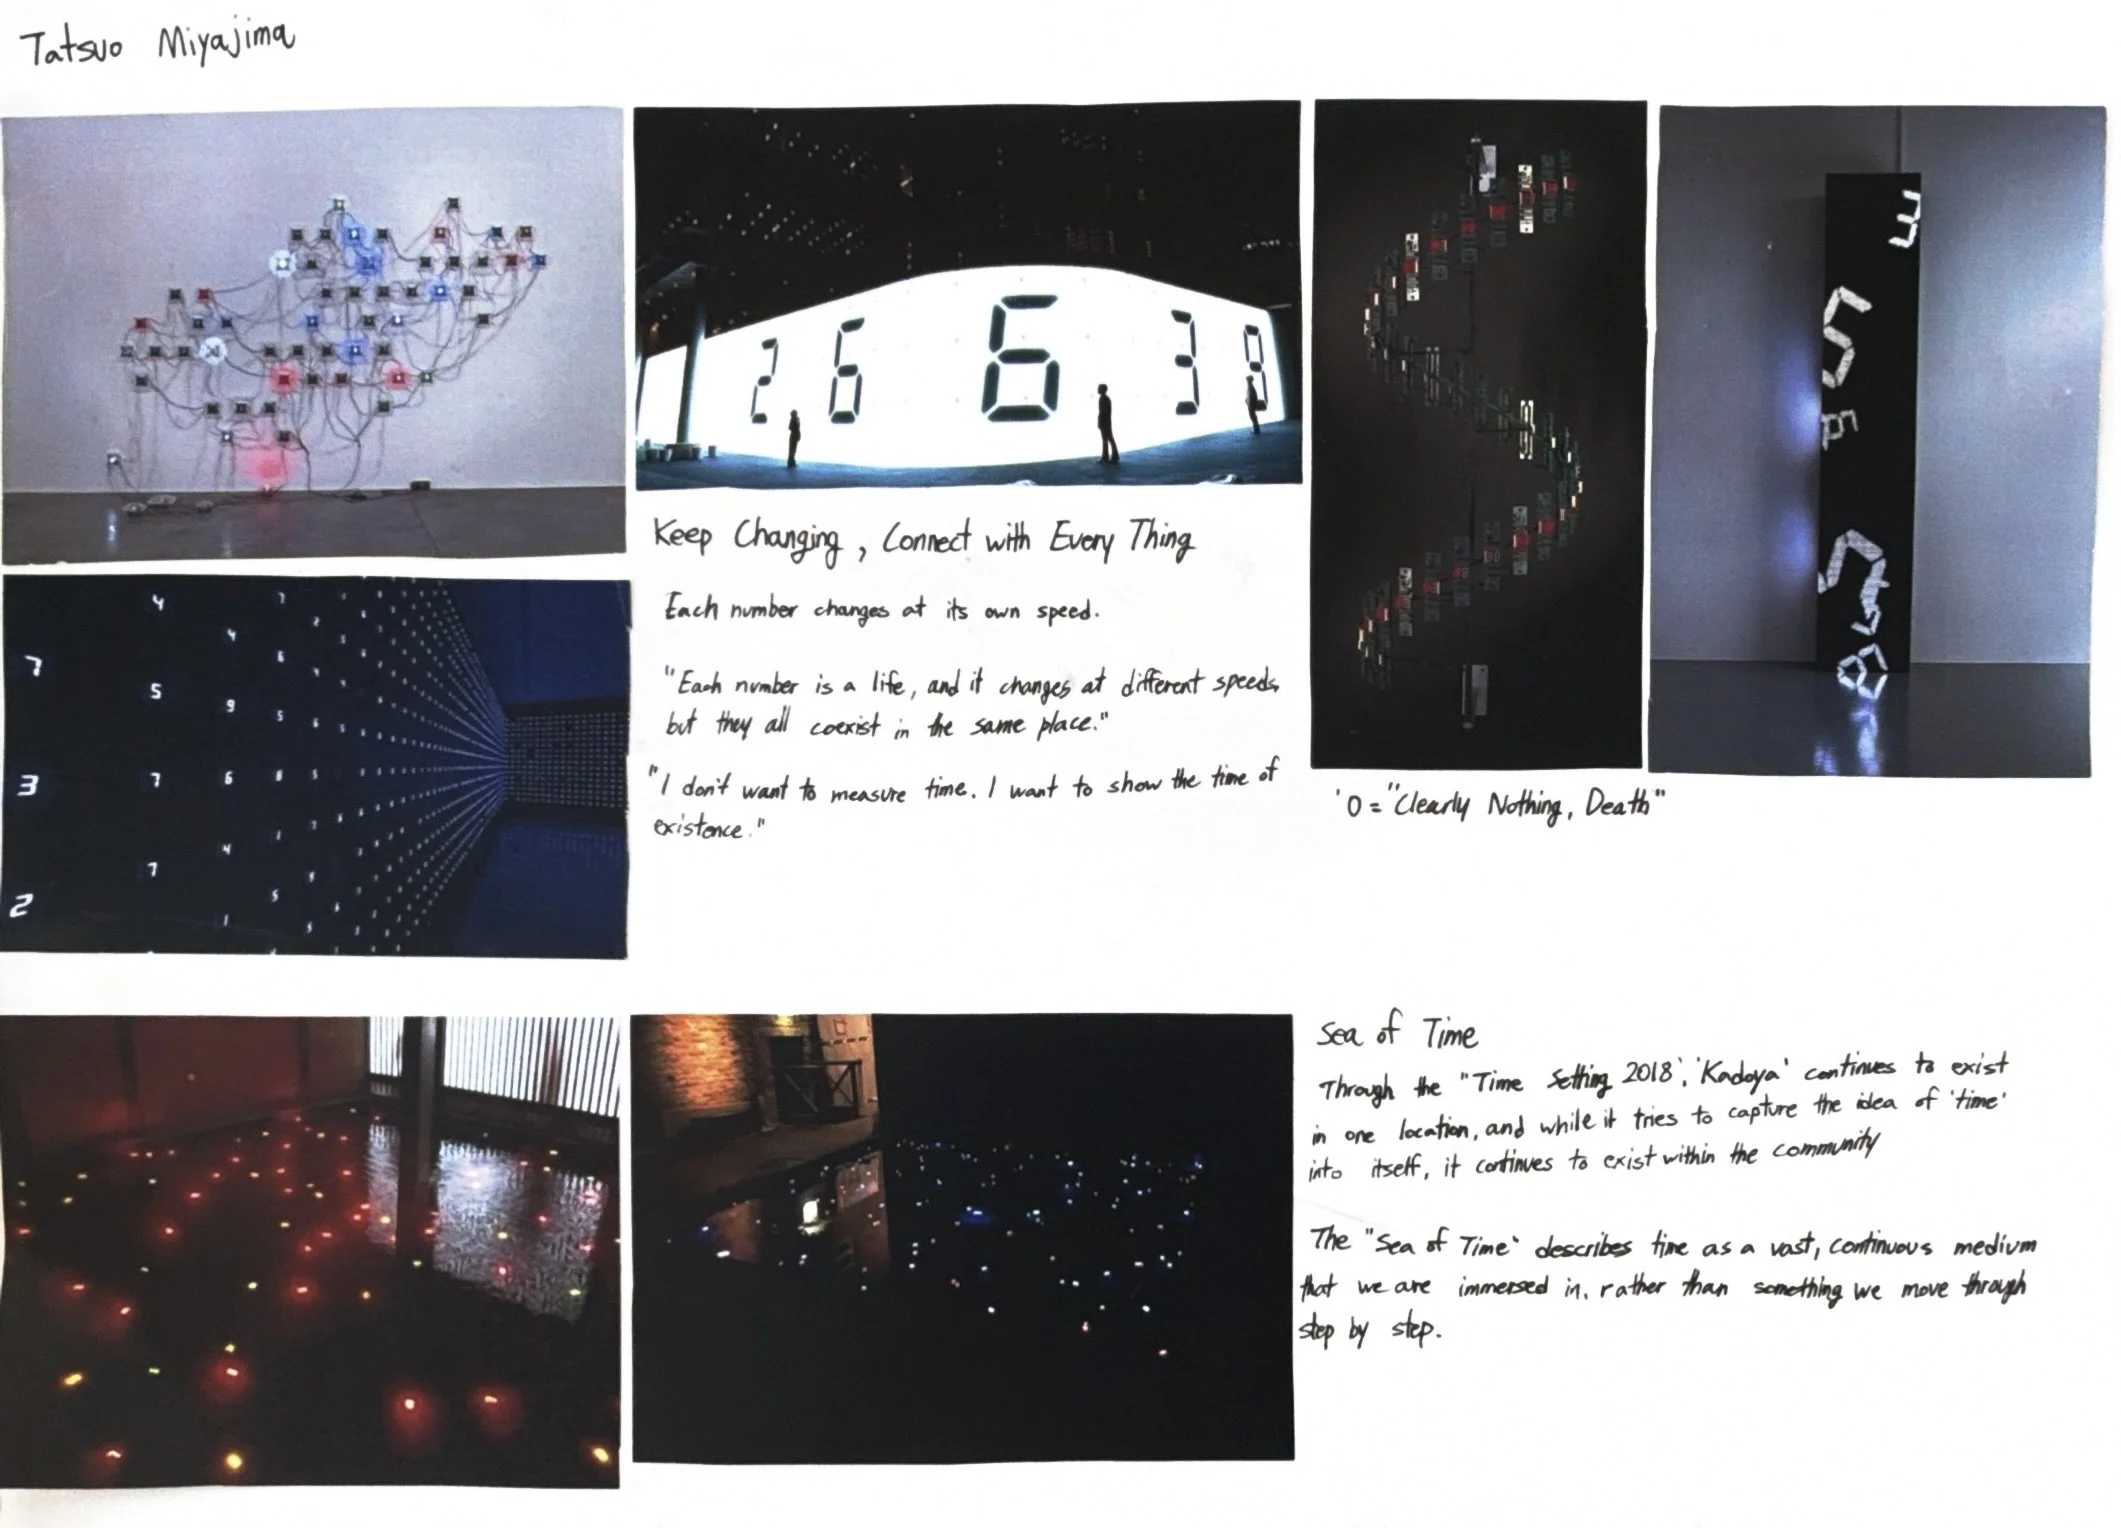 Tatsuo Miyajima
2 6 6 3 8
Keep Changing, Connect with Every Thing
Each number changes at its own speed.
"Each number is a life, and it changes at different speeds,
but they all coexist in the same place."
"I don't want to measure time. I want to show the time of
existence."
'0 = "Clearly Nothing, Death"
4
7
4
7
6
5
9
5
6
3
7
6
8
5
4
7
2
5
Sea of Time
Through the "Time Setting 2018', 'Kadoya' continues to exist
in one location, and while it tries to capture the idea of 'time'
into itself, it continues to exist within the community
The "Sea of Time" describes time as a vast, continuous medium
that we are immersed in, rather than something we move through
step by step.